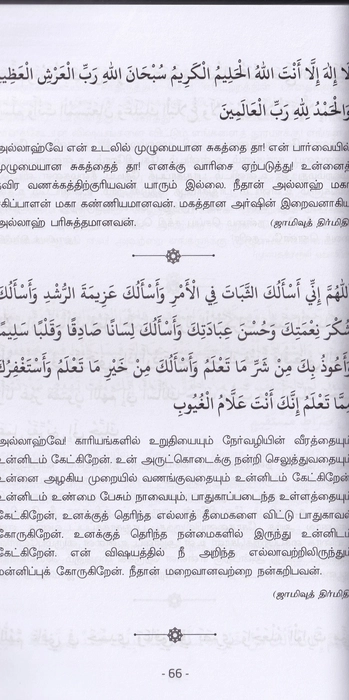 لَا إِلَهَ إِلَّا أَنْتَ اللهُ الْحَلِيمُ الْكَرِيمُ سُبْحَانَ اللهِ رَبِّ الْعَرْشِ الْعَظِيمِ
وَالْحَمْدُ لِلهِ رَبِّ الْعَالَمِينَ
அல்லாஹ்வே என் உடலில் முழுமையான சுகத்தை தா! என் பார்வையில்
முழுமையான சுகத்தைத் தா! எனக்கு வாரிசை ஏற்படுத்து! உன்னைத்
தவிர வணக்கத்திற்குரியவன் யாரும் இல்லை. நீதான் அல்லாஹ் மகா
சகிப்பாளன் மகா கண்ணியமானவன். மகத்தான அர்ஷின் இறைவனாகிய
அல்லாஹ் பரிசுத்தமானவன். (ஜாமிவுத் திர்மிதி)
اللهُمَّ إِنِّي أَسْأَلُكَ الثَّبَاتَ فِي الْأَمْرِ وَأَسْأَلُكَ عَزِيمَةَ الرُّشْدِ وَأَسْأَلُكَ
شُكْرَ نِعْمَتِكَ وَحُسْنَ عِبَادَتِكَ وَأَسْأَلُكَ لِسَانًا صَادِقًا وَقَلْبًا سَلِيمًا
وَأَعُوذُ بِكَ مِنْ شَرِّ مَا تَعْلَمُ وَأَسْأَلُكَ مِنْ خَيْرِ مَا تَعْلَمُ وَأَسْتَغْفِرُكَ
مِمَّا تَعْلَمُ إِنَّكَ أَنْتَ عَلَّامُ الْغُيُوبِ
அல்லாஹ்வே! காரியங்களில் உறுதியையும் நேர்வழியின் வீரத்தையும்
உன்னிடம் கேட்கிறேன். உன் அருட்கொடைக்கு நன்றி செலுத்துவதையும்
உன்னை அழகிய முறையில் வணங்குவதையும் உன்னிடம் கேட்கிறேன்
உன்னிடம் உண்மை பேசும் நாவையும், பாதுகாப்படைந்த உள்ளத்தையும்
கேட்கிறேன். உனக்குத் தெரிந்த எல்லாத் தீமைகளை விட்டு பாதுகாவல்
கோருகிறேன். உனக்குத் தெரிந்த நன்மைகளில் இருந்து உன்னிடம்
கேட்கிறேன். என் விஷயத்தில் நீ அறிந்த எல்லாவற்றிலிருந்தும்
மன்னிப்புக் கோருகிறேன். நீதான் மறைவானவற்றை நன்கறிபவன்.
(ஜாமிவுத் திர்மிதி)
- 66 -